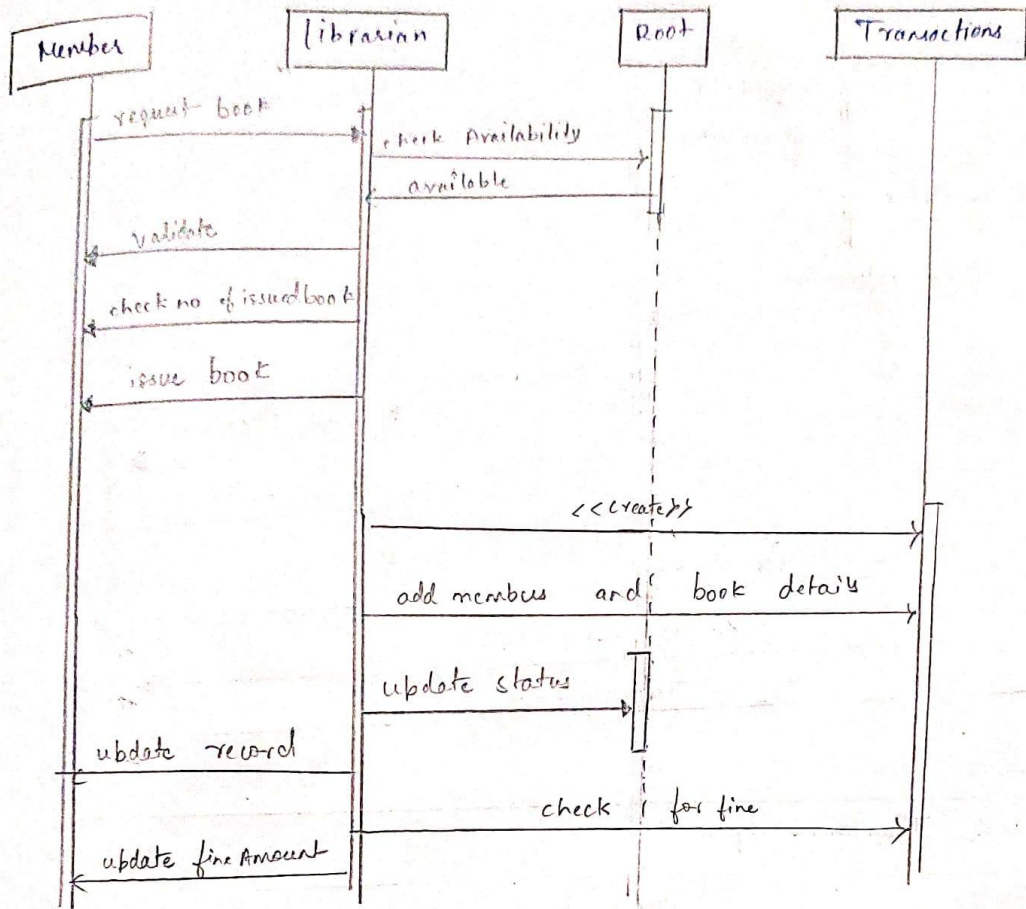 Member
Librarian
Root
Transactions
request book
check Availability
available
validate
check no of issued book
issue book
<<create>>
add members and book details
update status
update record
check for fine
update fine Amount